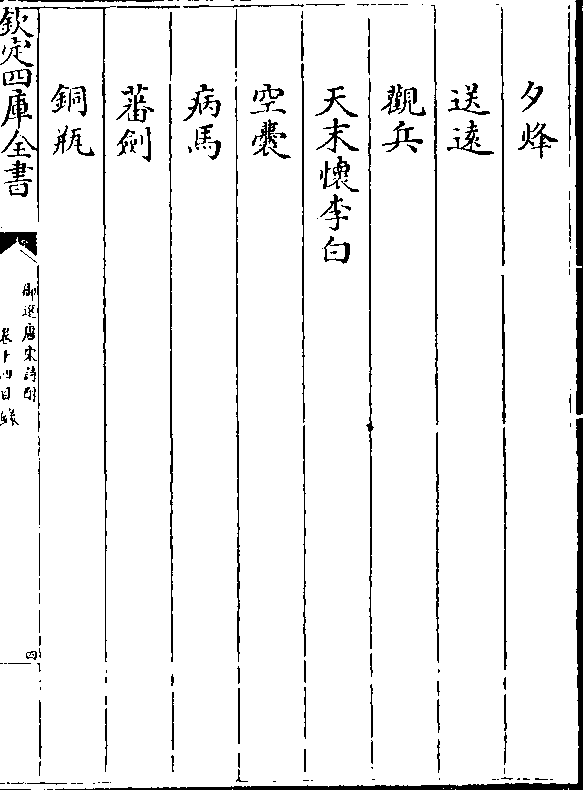 夕烽
送逺
觀兵
天末懷李白
空囊
病馬
蕃劍
銅瓶
欽定四庫全書
御選唐宋詩醇
卷十四目錄
四